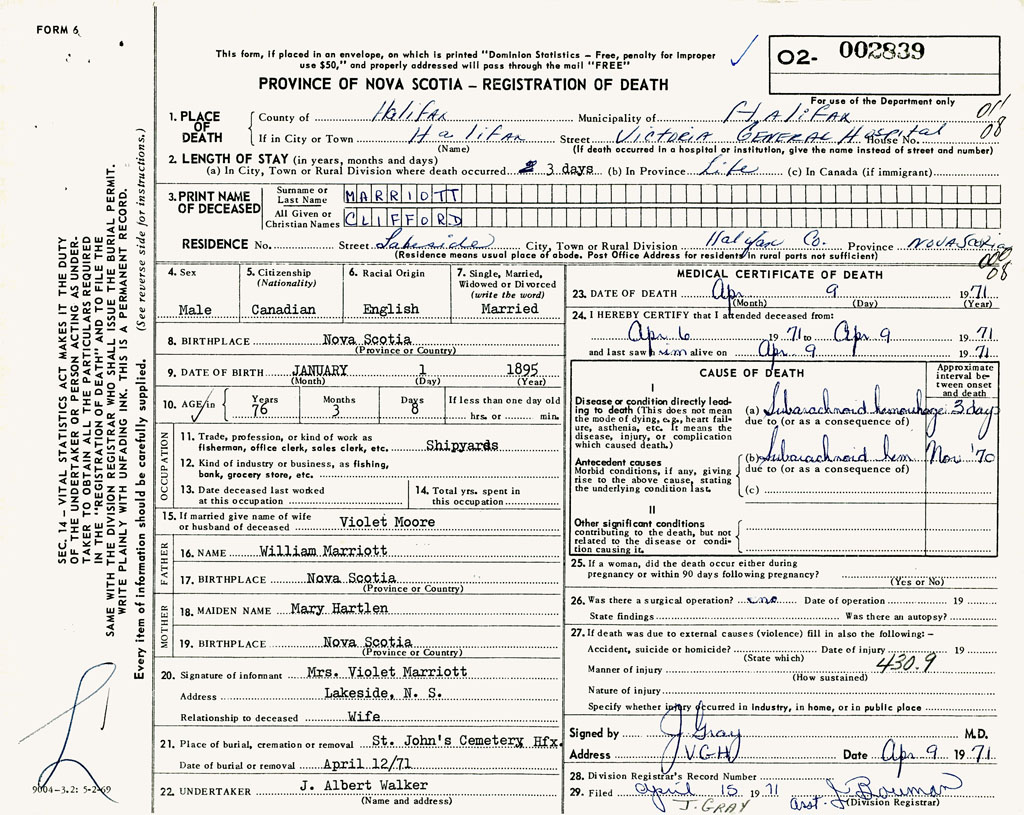 FORM 6
This form, if placed in an envelope, on which is printed "Dominion Statistics – Free, penalty for improper
use $50," and properly addressed will pass through the mail "FREE"
02- 002839
PROVINCE OF NOVA SCOTIA – REGISTRATION OF DEATH
For use of the Department only
1. PLACE OF DEATH
County of Halifax Municipality of Halifax
If in City or Town Halifax Street Victoria General Hospital House No.
(Name) (If death occurred in a hospital or institution, give the name instead of street and number)
08
2. LENGTH OF STAY (in years, months and days)
(a) In City, Town or Rural Division where death occurred 3 days (b) In Province Life (c) In Canada (if immigrant)
3. PRINT NAME OF DECEASED
Surname or Last Name MARRIOTT
All Given or Christian Names CLIFFORD
RESIDENCE No. Street Lakeside City, Town or Rural Division Halifax Co. Province Nova Scotia
(Residence means usual place of abode. Post Office Address for residents in rural parts not sufficient)
08
4. Sex Male
5. Citizenship (Nationality) Canadian
6. Racial Origin English
7. Single, Married, Widowed or Divorced (write the word) Married
8. BIRTHPLACE Nova Scotia
(Province or Country)
9. DATE OF BIRTH JANUARY 1 1895
(Month) (Day) (Year)
10. AGE in Years 76 Months 3 Days 8 If less than one day old hrs. or min.
OCCUPATION
11. Trade, profession, or kind of work as
fishermen, office clerk, sales clerk, etc. Shipyards
12. Kind of industry or business, as fishing,
bank, grocery store, etc.
13. Date deceased last worked
at this occupation
14. Total yrs. spent in
this occupation
15. If married give name of wife
or husband of deceased Violet Moore
FATHER
16. NAME William Marriott
17. BIRTHPLACE Nova Scotia
(Province or Country)
MOTHER
18. MAIDEN NAME Mary Hartlen
19. BIRTHPLACE Nova Scotia
(Province or Country)
20. Signature of informant Mrs. Violet Marriott
Address Lakeside, N. S.
Relationship to deceased Wife
21. Place of burial, cremation or removal St. John's Cemetery Hfx.
Date of burial or removal April 12/71
22. UNDERTAKER J. Albert Walker
(Name and address)
MEDICAL CERTIFICATE OF DEATH
23. DATE OF DEATH Apr 9 1971
(Month) (Day) (Year)
24. I HEREBY CERTIFY that I attended deceased from:
Apr 6 1971 to Apr 9 1971
and last saw him alive on Apr 9 1971
CAUSE OF DEATH
Approximate interval between onset and death
I
Disease or condition directly leading to death (This does not mean the mode of dying, e.g., heart failure, asthenia, etc. It means the disease, injury, or complication which caused death.)
(a) Subarachnoid hemorrhage 3 days
due to (or as a consequence of)
Antecedent causes
Morbid conditions, if any, giving rise to the above cause, stating the underlying condition last.
(b) Subarachnoid hem Nov '70
due to (or as a consequence of)
(c)
II
Other significant conditions
contributing to the death, but not related to the disease or condition causing it.
25. If a woman, did the death occur either during
pregnancy or within 90 days following pregnancy?
(Yes or No)
26. Was there a surgical operation? no Date of operation 19
State findings Was there an autopsy?
27. If death was due to external causes (violence) fill in also the following: –
Accident, suicide or homicide? Date of injury 19
(State which)
430.9
Manner of injury
(How sustained)
Nature of injury
Specify whether injury occurred in industry, in home, or in public place
Signed by J Gray M.D.
Address V.G.H Date Apr 9 1971
28. Division Registrar's Record Number
29. Filed April 15 1971 asst. J Bowman
J. GRAY (Division Registrar)
SEC. 14 – VITAL STATISTICS ACT MAKES IT THE DUTY
OF THE UNDERTAKER OR PERSON ACTING AS UNDER-
TAKER TO OBTAIN ALL THE PARTICULARS REQUIRED
IN THE "REGISTRATION OF DEATH" AND TO FILE THE
SAME WITH THE DIVISION REGISTRAR WHO SHALL ISSUE THE BURIAL PERMIT.
WRITE PLAINLY WITH UNFADING INK. THIS IS A PERMANENT RECORD.
Every item of information should be carefully supplied. (See reverse side for instructions.)
9004-3.2: 5-2-69